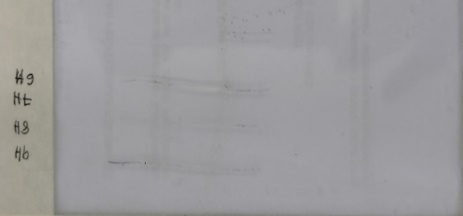 H9
Ht
H8
H6